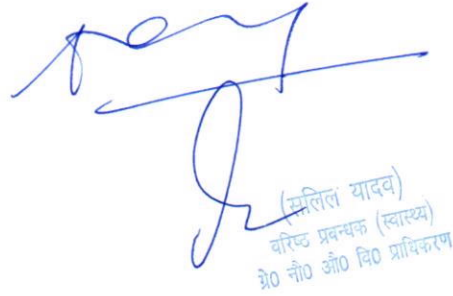 (सलिल यादव)
वरिष्ठ प्रबन्धक (स्वास्थ्य)
ग्रे0 नौ0 औ0 वि0 प्राधिकरण